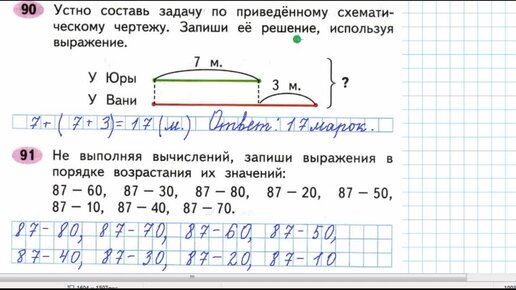 90 Устно составь задачу по приведённому схемати-
ческому чертежу. Запиши её решение, используя
выражение.
7 м.
У Юры
3 м.
?
У Вани
7+(7+3)=17(м.) Ответ: 17 марок.
91 Не выполняя вычислений, запиши выражения в
порядке возрастания их значений:
87 − 60, 87 − 30, 87 − 80, 87 − 20, 87 − 50,
87 − 10, 87 − 40, 87 − 70.
87-80, 87-70, 87-60, 87-50,
87-40, 87-30, 87-20, 87-10